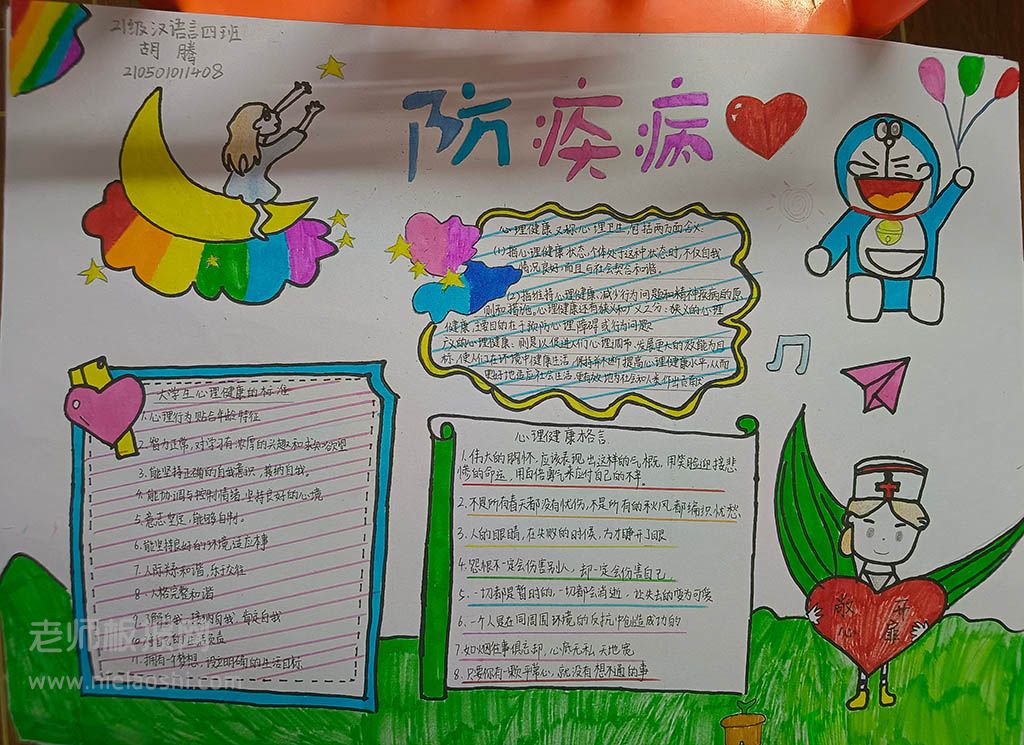 21级汉语言四班
胡 腾
210501011408
防疾病
心理健康又称心理卫生,包括两方面含义:
(1)指心理健康状态,个体处于这种状态时,不仅自我
情况良好,而且与社会契合和谐。
(2)指维持心理健康、减少行为问题和精神疾病的原
则和措施。心理健康还有狭义和广义之分:狭义的心理
健康,主要目的在于预防心理障碍或行为问题;
广义的心理健康,则是以促进人们心理调节、发展更大的效能为目
标,使人们在环境中健康生活,保持并不断提高心理健康水平,从而
更好地适应社会生活,更有效地为社会和人类作出贡献
大学生心理健康的标准
1.心理行为贴合年龄特征
2.智力正常,对学习有浓厚的兴趣和求知欲望
3.能坚持正确的自我意识,接纳自我。
4.能协调与控制情绪,坚持良好的心境
5.意志坚定,能够自制。
6.能坚持良好的环境适应本事
7.人际关系和谐,乐于交往
8.人格完整和谐
9.了解自我,接纳自我,肯定自我
11.拥有个梦想,设立明确的生活目标
心理健康格言
1.伟大的胸怀,应该表现出这样的气概,用笑脸迎接悲
惨的命运,用百倍勇气来应付自己的不幸。
2.不是所有春天都没有忧伤,不是所有的秋风都编织忧愁
3.人的眼睛,在失败的时候,方才睁开了眼
4.怨恨不一定会伤害别人,却一定会伤害自己
5.一切都是暂时的,一切都会消逝,让失去的变为可爱
6.一个人是在同周围环境的反抗中创造成功的
7.如烟往事俱忘却,心底无私天地宽
8.只要你有一颗平常心,就没有想不通的事
敞开
心扉
老师板报网
www.hielaoshi.com